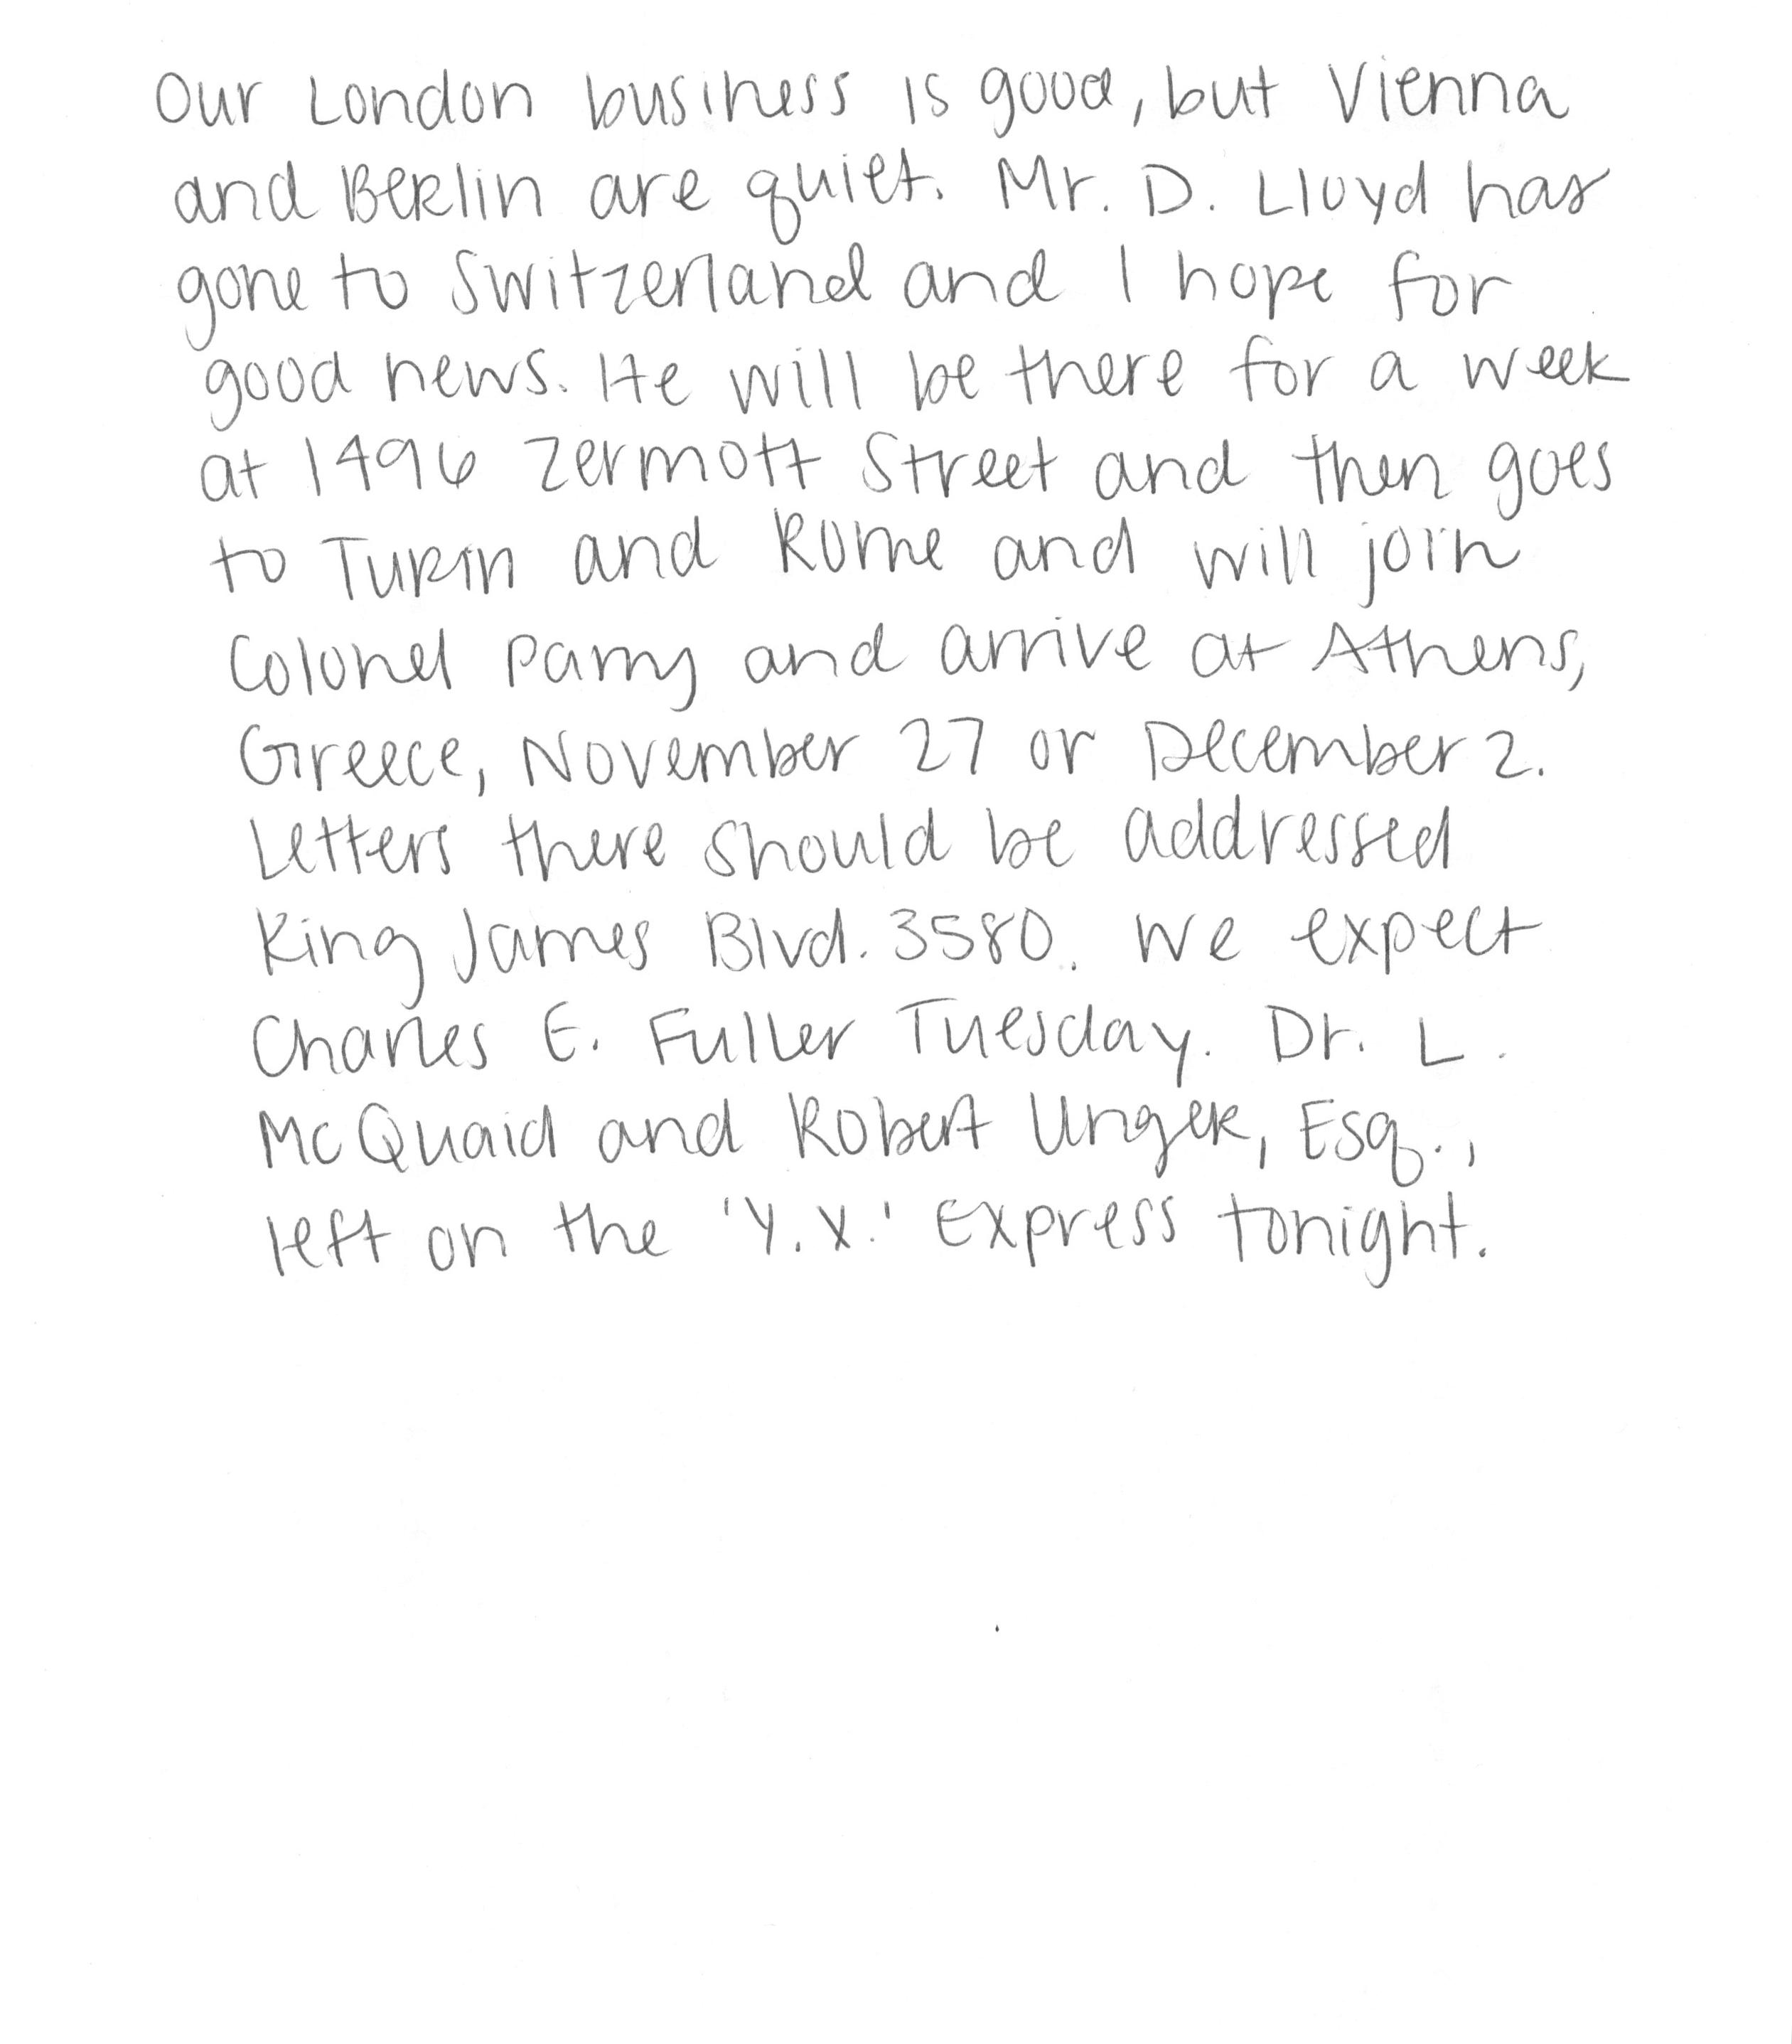 Our London business is good, but Vienna
and Berlin are quiet. Mr. D. Lloyd has
gone to Switzerland and I hope for
good news. He will be there for a week
at 1496 Zermott Street and then goes
to Turin and Rome and will join
Colonel Parry and arrive at Athens,
Greece, November 27 or December 2.
Letters there should be addressed
King James Blvd. 3580. We expect
Charles E. Fuller Tuesday. Dr. L.
McQuaid and Robert Unger, Esq.,
left on the 'Y.X.' Express tonight.